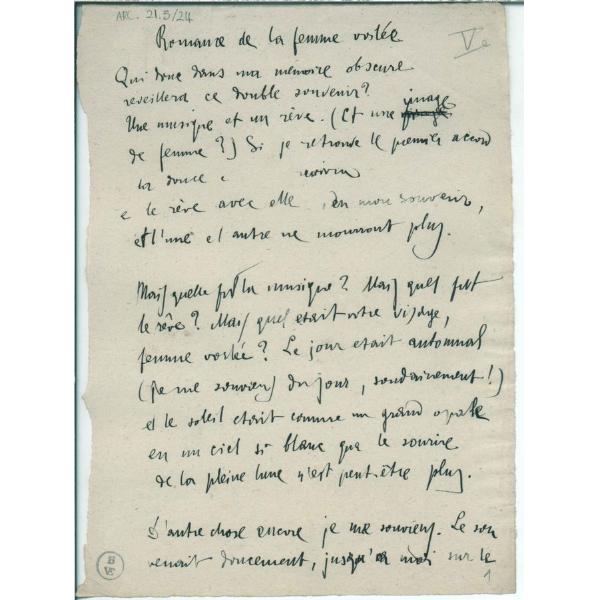 ARC. 21.5/24
Romance de la femme voilée
V e
Qui donc dans ma mémoire obscure
reveillera ce double souvenir?
Une musique et un rêve. (Et une image
de femme?) Si je retrouve le premier accord
la douce
e le rêve avec elle, en mon souvenir,
et l'une et autre ne mourront plus.
Mais quelle fut la musique? Mais quel fut
le rêve? Mais quel etait votre visage,
femme voilée? Le jour etait automnal
(Je me souviens du jour, soudainement!)
et le soleil etait comme un grand opale
en un ciel si blanc que le sourire
de la pleine lune n'est peut-être plus.
D'autre chose encore je me souviens. Le son
venait doucement, jusqu'a moi sur le
B
VE
1